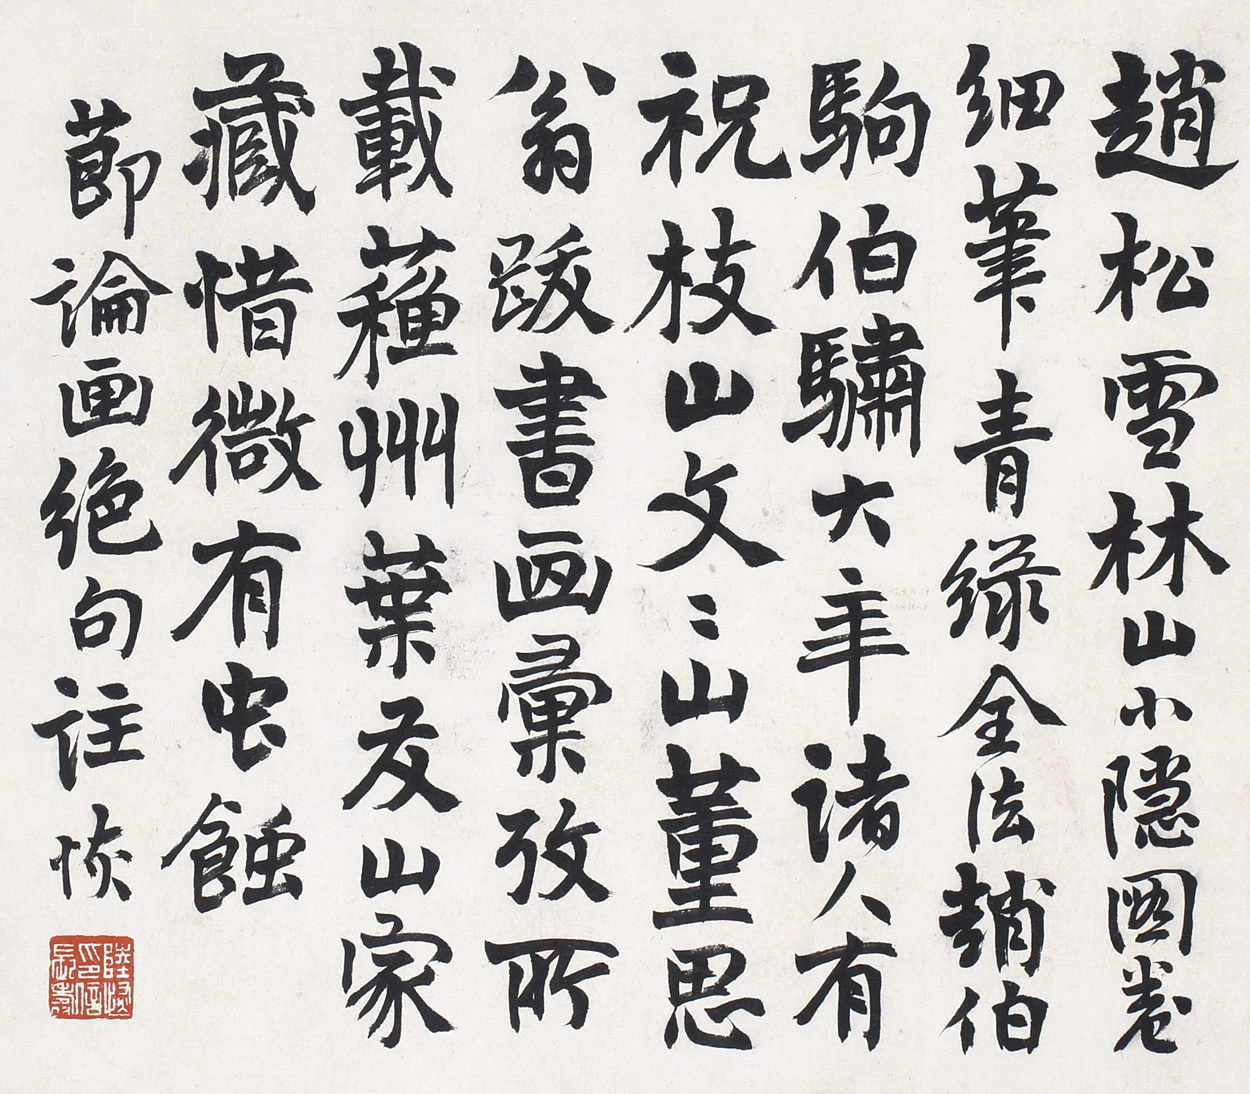 趙松雪林山小隱圖卷
細筆青緑全法趙伯
駒伯驌大年諸人有
祝枝山文〻山董思
翁跋書画彙攷所
載蘓州葉友山家
藏惜微有虫蝕
節論画绝句註恢